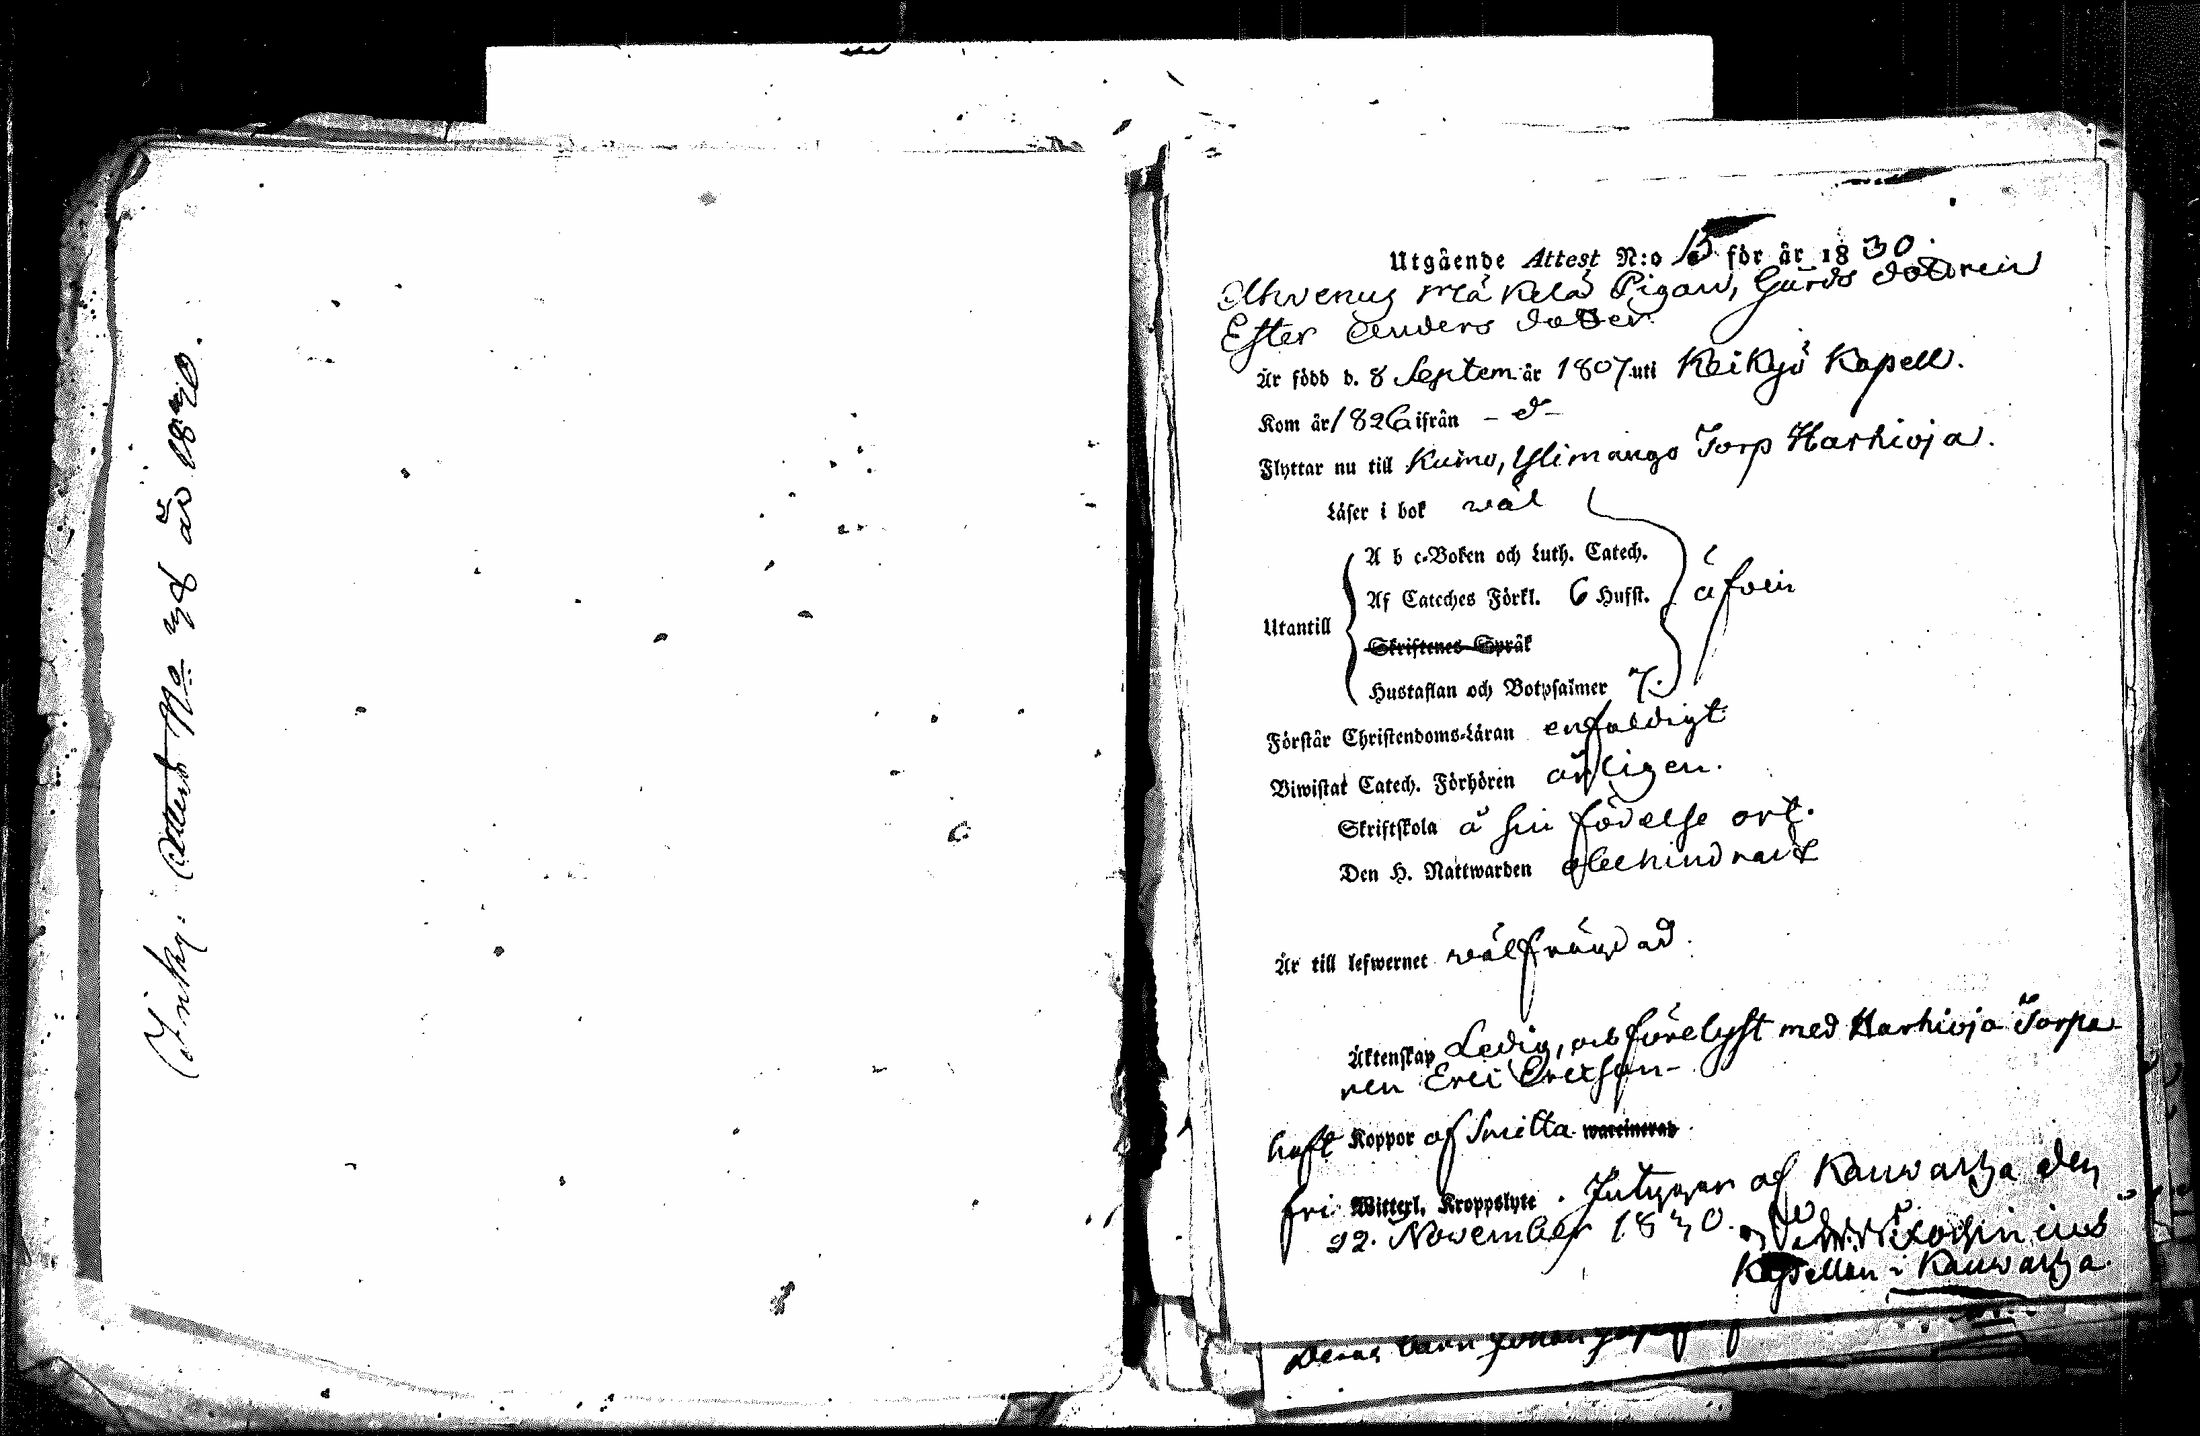 Inkg. Attest No 24 år 1830.
Utgående Attest N:o 13 för år 1830.
Ahvenus Mäkelä Pigan, Gårds dottren
Ester Anders dotter
Är född d. 8 Septem år 1807 uti Keikyö Kapell.
Kom år 1826 ifrån - d -
Flyttar nu till Kumo, Ylistango Torp Harhioja.
Läser i bok wäl
A b c-Boken och Luth. Catech.
Af Cateches Förkl. 6 Hufst. äfven
Utantill
Skriftenes Språk
Hustaflan och Botpsalmer 7.
Förstår Christendoms-Läran enfaldigt
Biwistat Catech. Förhören årligen.
Skriftskola å sin födelse ort.
Den H. Nattwarden obehindradt
Är till lefwernet wälfräjdad.
Äktenskap Ledig, och förelyst med Harhioja Torpa
ren Eric Ericsson -
haft Koppor af Smitta waccinerad
fri Witterl. Kroppslyte. Intygar af Kauwatsa den
22. November 1830.
Kapellan i Kauwatsa.
Deras barn Johan